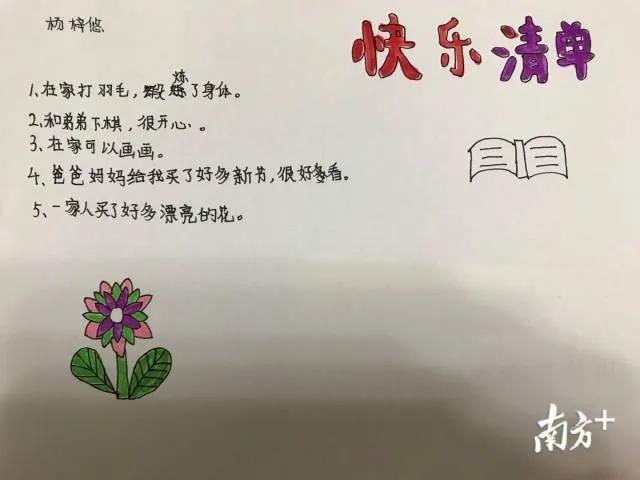 杨梓悠
快乐清单
1、在家打羽毛，煅炼了身体。
2、和弟弟下棋，很开心。
3、在家可以画画。
4、爸爸妈妈给我买了好多新书，很好看。
5、一家人买了好多漂亮的花。
南方+